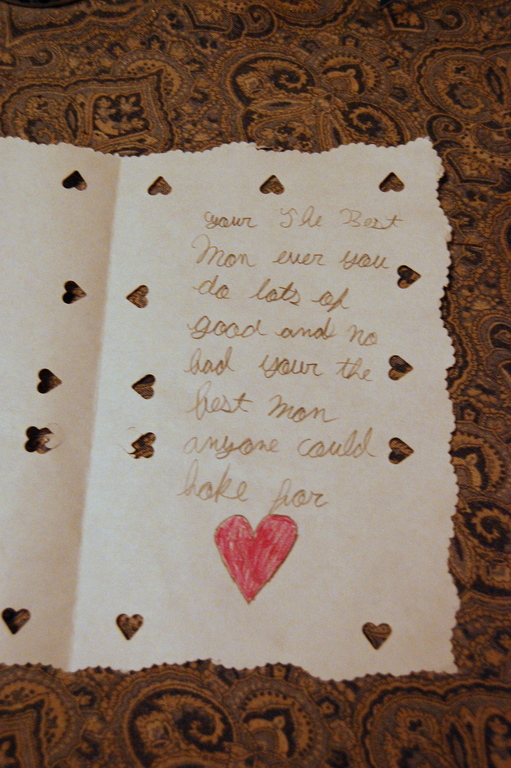 your The Best
Mon ever you
do lots of
good and no
bad your the
best mon
anyone could
hoke for